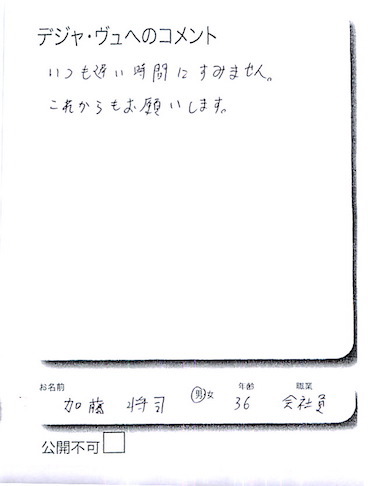 デジャ・ヴュへのコメント
いつも遅い時間にすみません。
これからもお願いします。
お名前 年齢 職業
加藤 将司 男女 36 会社員
公開不可